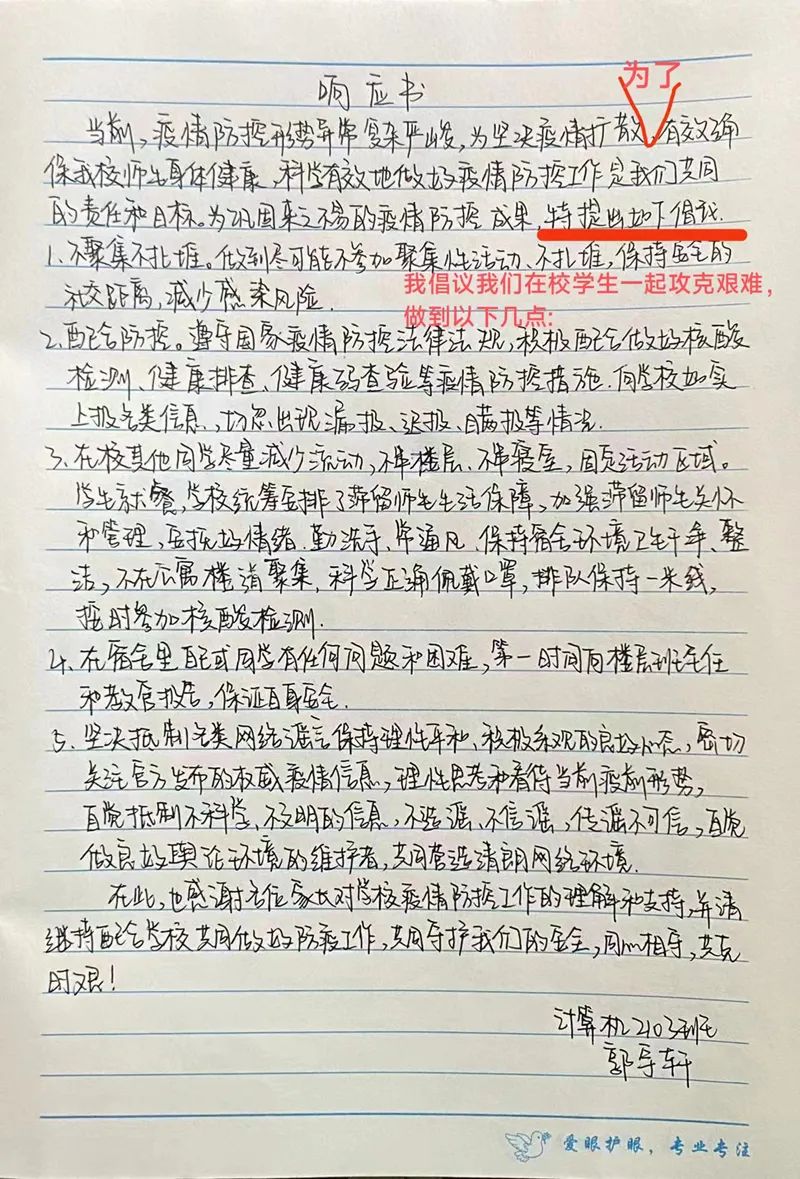 响应书
为了
当前，疫情防控形势异常复杂严峻，为坚决疫情扩散，有效确
保我校师生身体健康，科学有效地做好疫情防控工作是我们共同
的责任和目标。为巩固来之不易的疫情防控成果，特提出如下倡议.
1.不聚集不扎堆。做到尽可能不参加聚集性活动、不扎堆，保持安全的
社交距离，减少感染风险.
我倡议我们在校学生一起攻克艰难，
做到以下几点:
2.配合防控。遵守国家疫情防控法律法规，积极配合做好核酸
检测、健康排查、健康码查验等疫情防控措施.向学校如实
上报各类信息，切忌出现漏报、迟报、瞒报等情况.
3、在校其他同学尽量减少流动，不串楼层、不串寝室，固定活动区域。
学生就餐，学校统筹安排了滞留师生生活保障，加强滞留师生关怀
和管理，安抚好情绪.勤洗手、常通风、保持宿舍环境卫生干净、整
洁，不在公寓楼道聚集，科学正确佩戴口罩，排队保持一米线，
按时参加核酸检测.
4.在宿舍里自己或同学有任何问题和困难，第一时间向楼层班主任
和教官报告，保证自身安全.
5、坚决抵制各类网络谣言保持理性平和、积极乐观的良好心态，密切
关注官方发布的权威疫情信息，理性思考和看待当前疫情形势，
自觉抵制不科学、不文明的信息，不造谣、不信谣，传谣不可信，自觉
做良好舆论环境的维护者，共同营造清朗网络环境.
在此，也感谢各位家长对学校疫情防控工作的理解和支持，并请
继持配合学校共同做好防疫工作，共同守护我们的安全，同心相守，共克
时艰！
计算机2103班
郭宇轩
爱眼护眼，专业专注